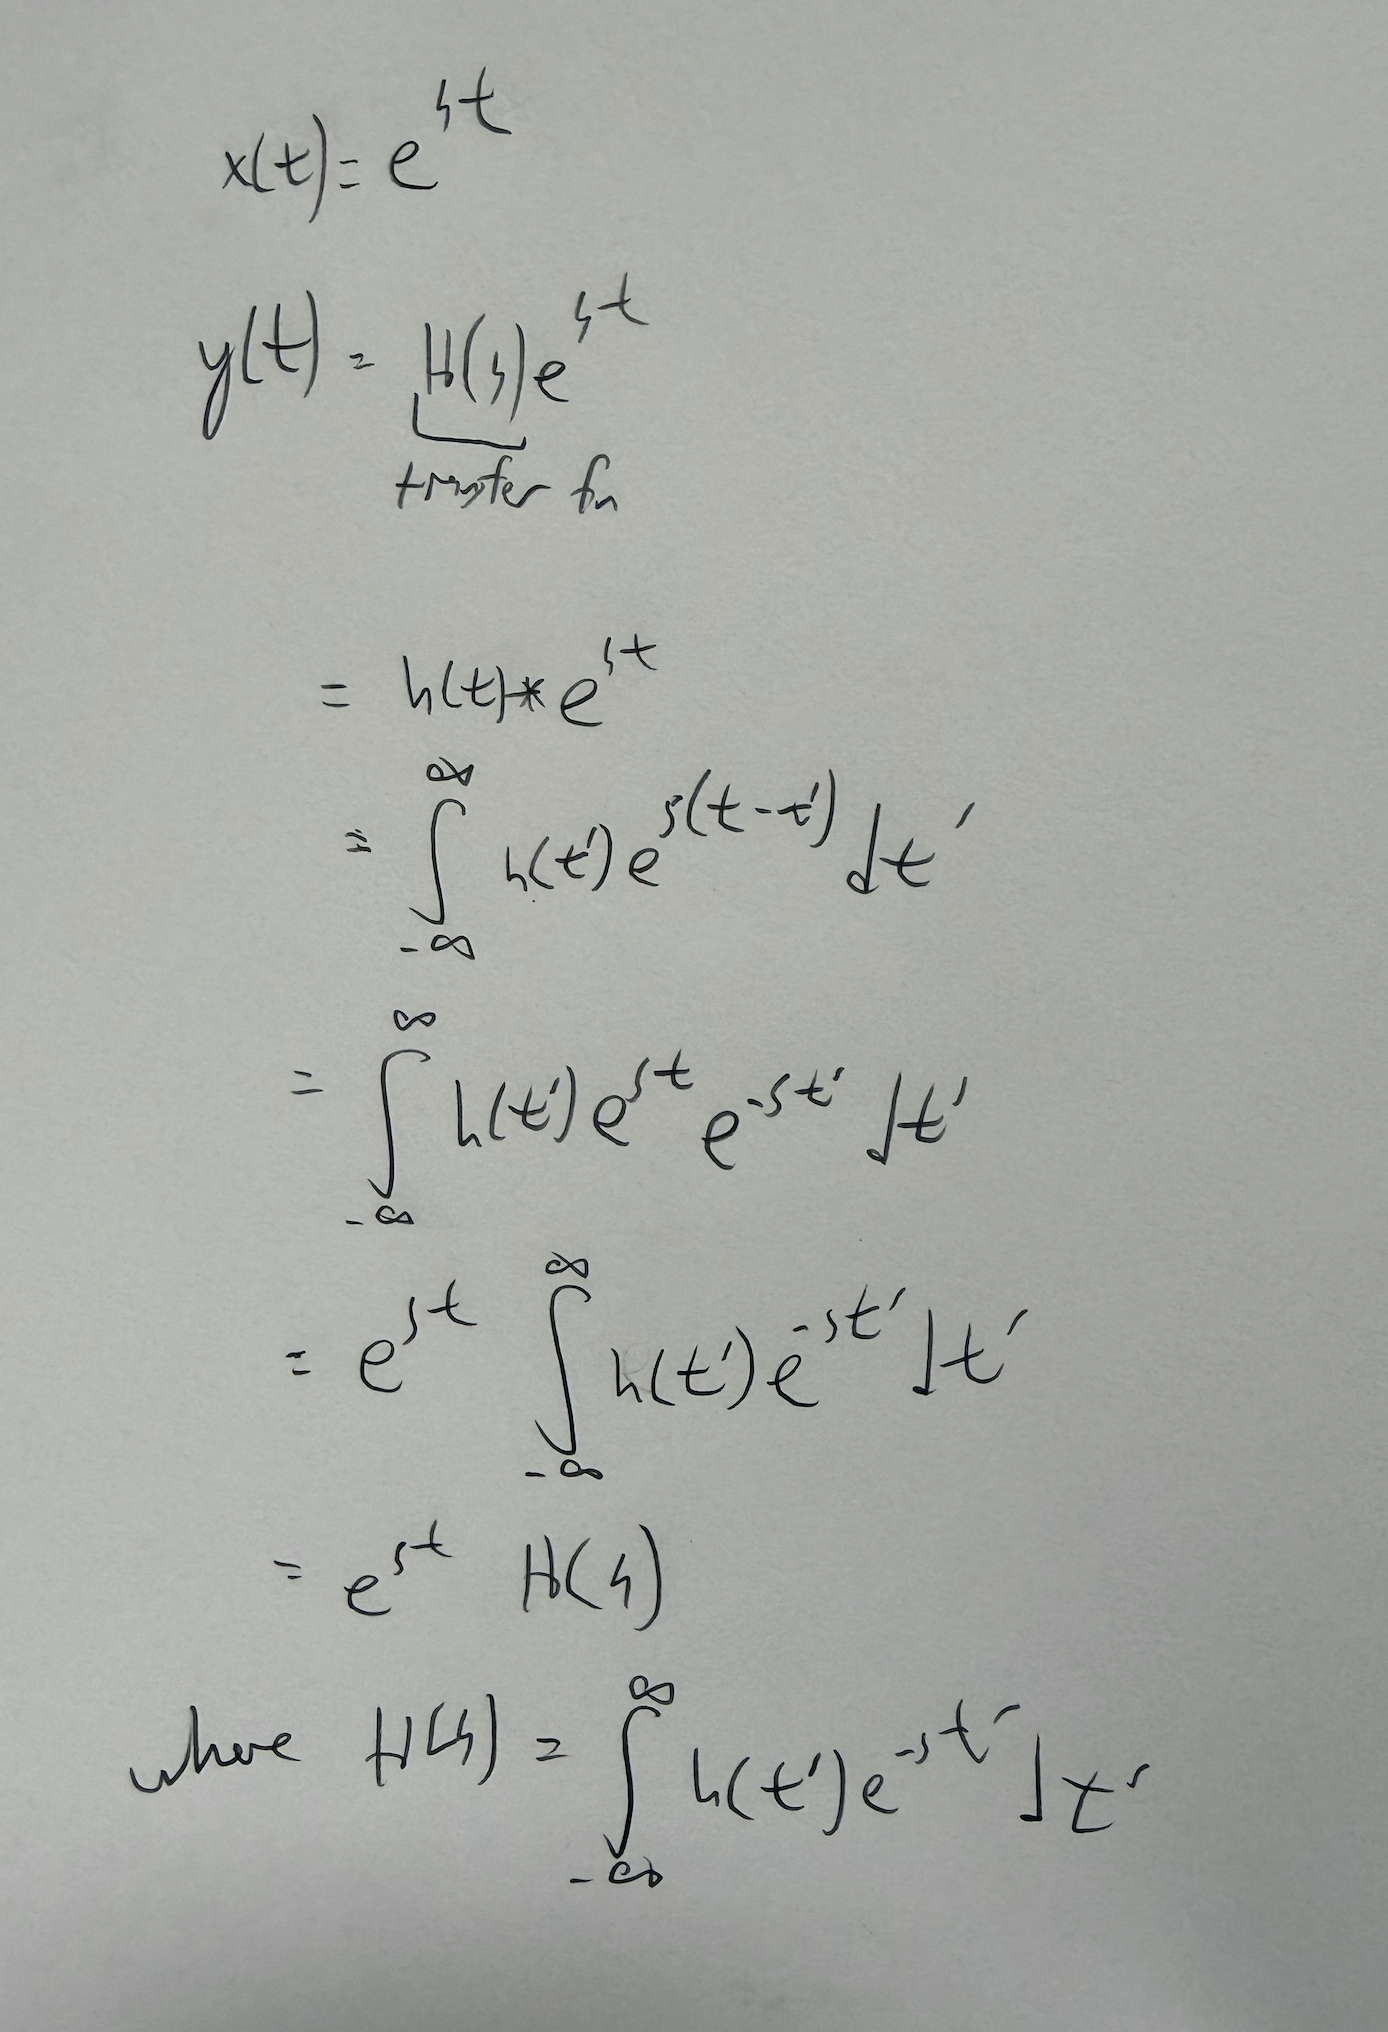 x(t) = e^{st}
y(t) = H(s)e^{st}
transfer fn
= h(t)*e^{st}
= ∫_{-∞}^{∞} h(t')e^{s(t-t')} dt'
= ∫_{-∞}^{∞} h(t')e^{st} e^{-st'} dt'
= e^{st} ∫_{-∞}^{∞} h(t')e^{-st'} dt'
= e^{st} H(s)
where H(s) = ∫_{-∞}^{∞} h(t')e^{-st'} dt'